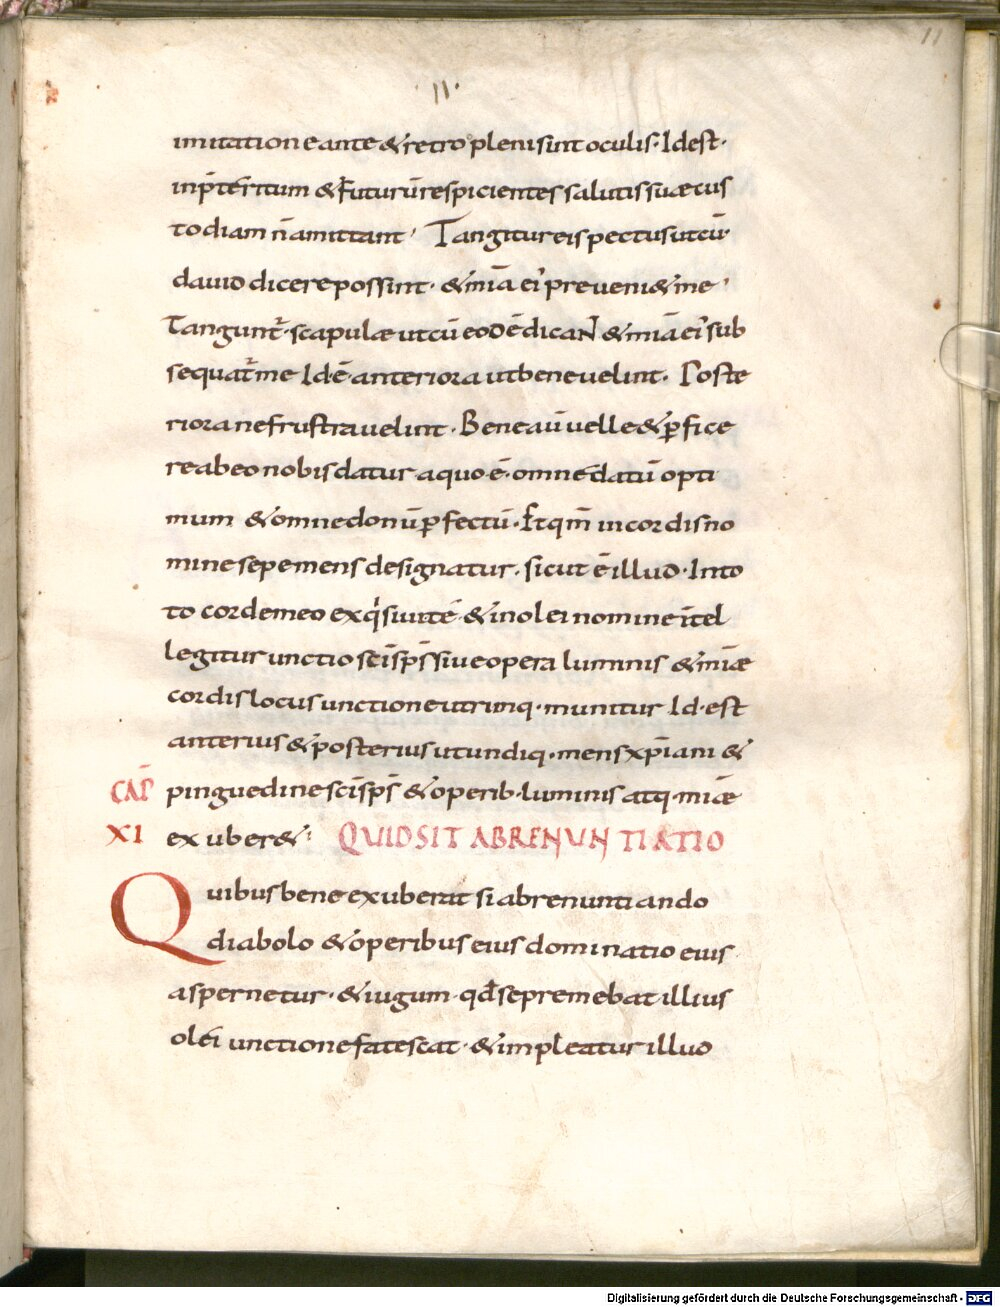 11
·11·
imitatione ante & retro pleni sint oculis· Id est·
inp̄teritum & futurū respicientes salutis suae cus
todiam n̄ amittant· Tangitur eis pectus ut cū
dauid dicere possint· & mīa ei' preueni& me·
Tangunt̄· scapulae ut cū eodē dicant & mīa ei' sub
sequat̄ me Id·ē· anteriora ut bene uelint· Poste
riora ne frustra uelint· Bene aū uelle & ꝑfice
re ab eo nobis datur a quo ē· omne datū opti
mum & omne donū ꝑfectū· Et qm̄ in cordis no
mine sepe mens designatur· sicut ē illud· In to
to corde meo exq'siui tē & in olei nomine ītel
legitur unctio sc̄i sp̄s siue opera luminis & mīae
cordis locus unctione utrimq· munitur Id·est
anterius & posterius ut undiq· mens xp̄iani &
CAP̄ pinguedine sc̄i sp̄s & operib· luminis atq· mīae
XI ex uber&· QUID SIT ABRENUNTIATIO
Quibus bene exuberat si abrenuntiando
diabolo & operibus eius dominatio eius
aspernetur· & iugum· qd̄ se premebat illius
olei unctione fatescat· & impleatur illud
Digitalisierung gefördert durch die Deutsche Forschungsgemeinschaft - DFG